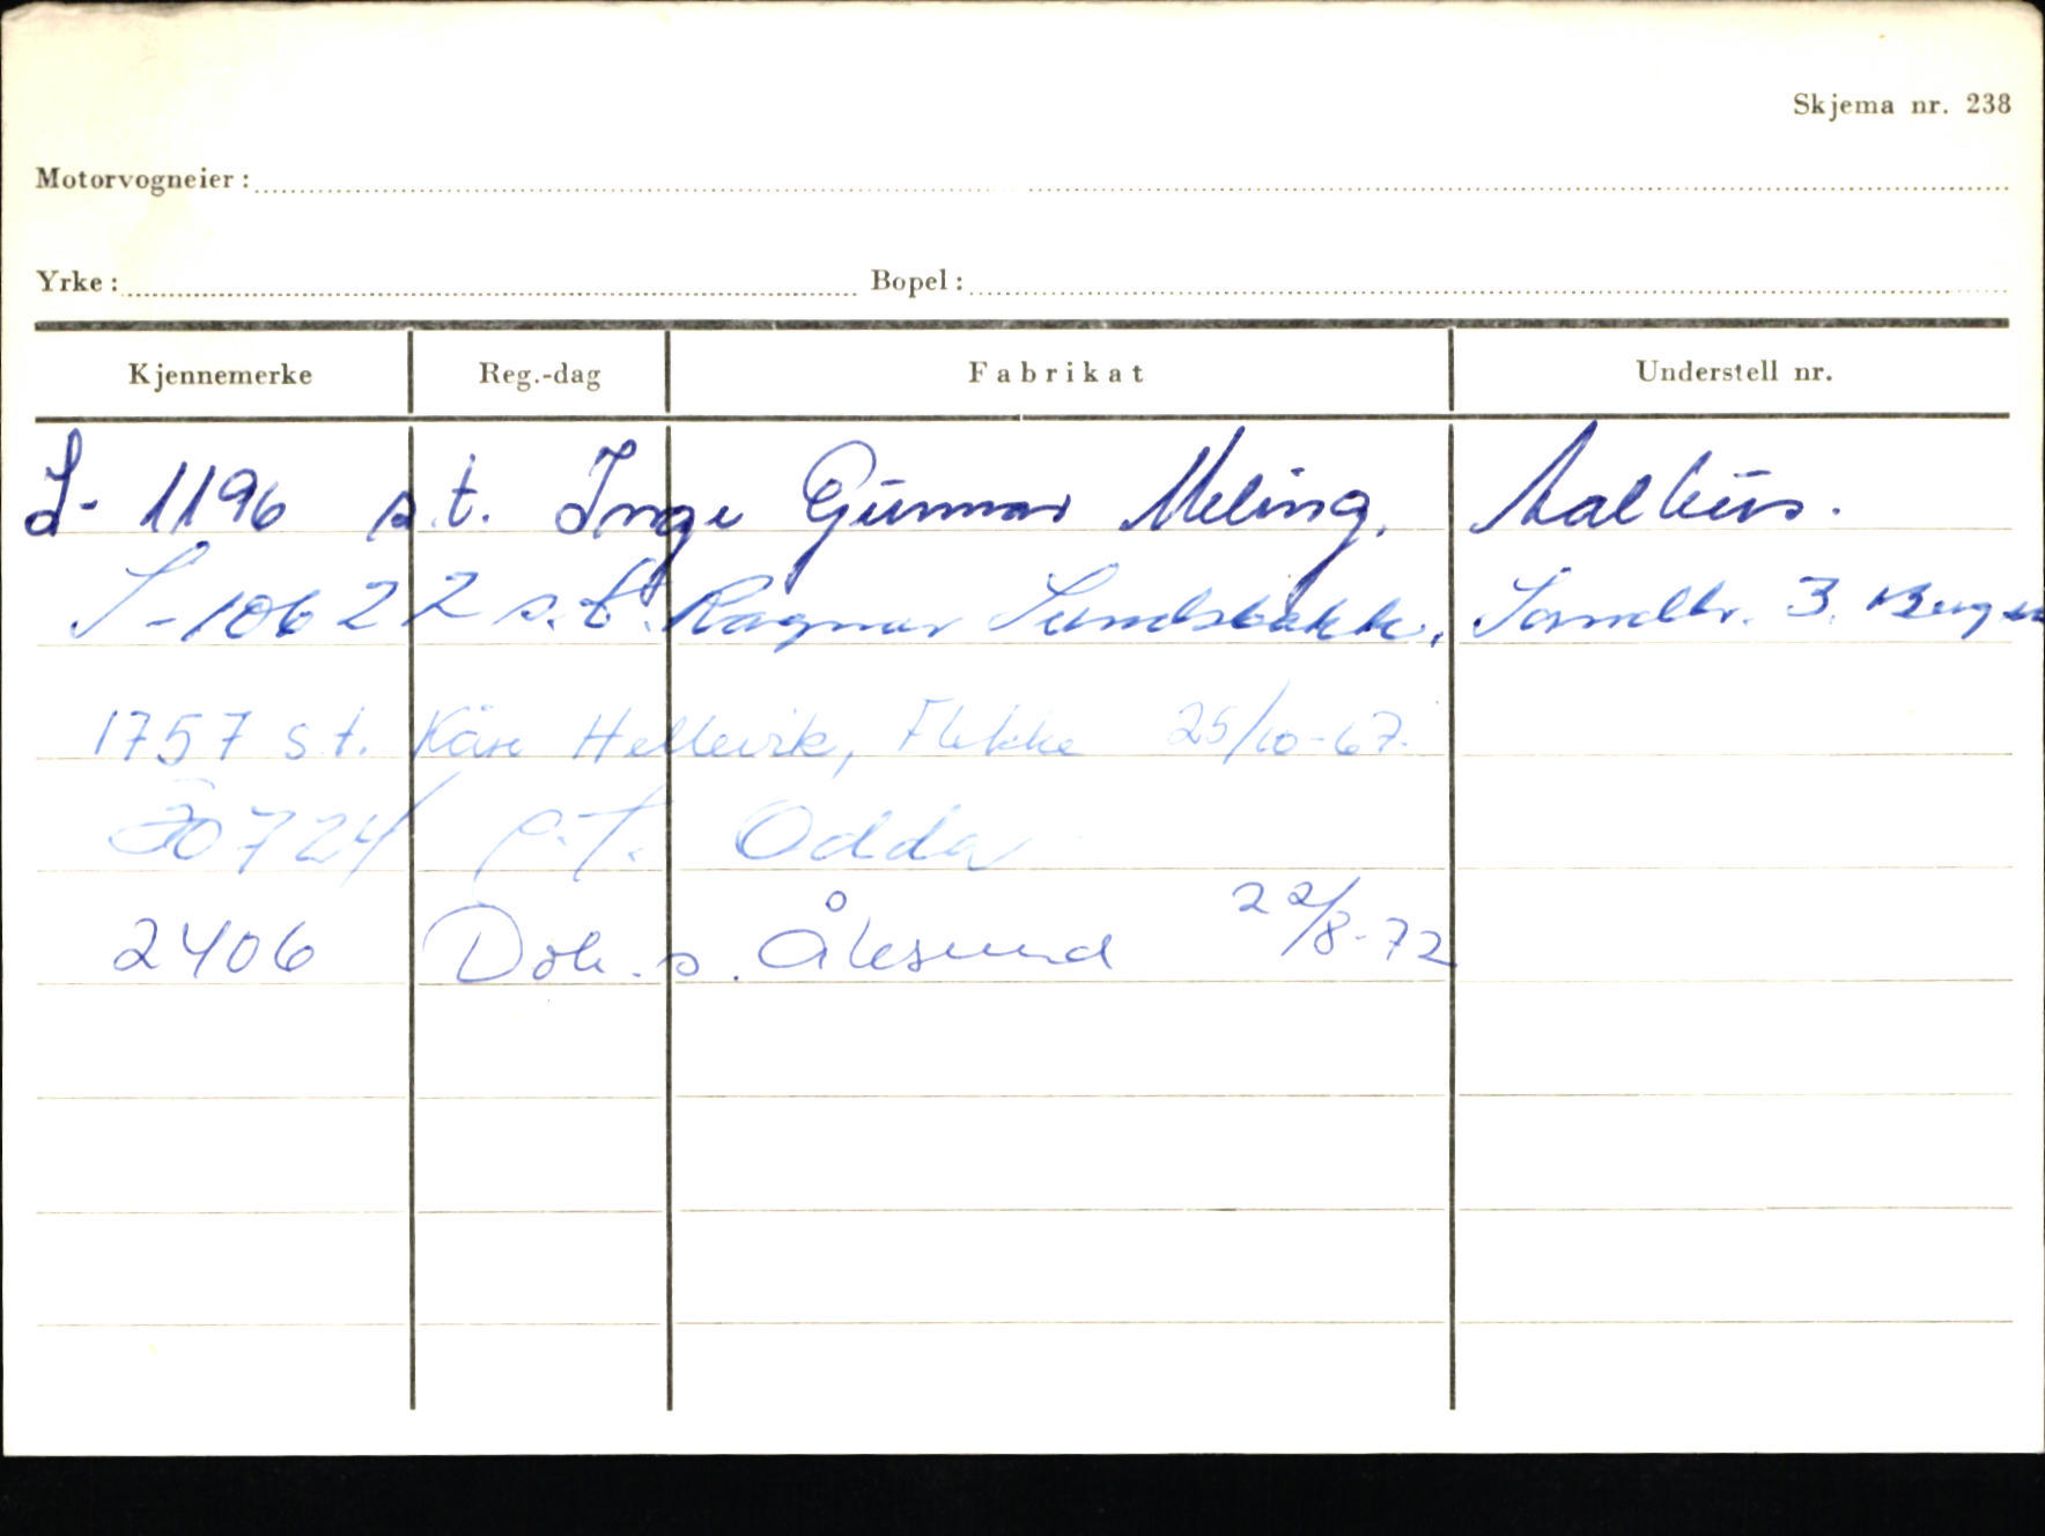 Skjema nr. 238
Motorvogneier:
Yrke: Bopel:
Kjennemerke Reg.-dag Fabrikat Understell nr.
S- 1196 s.t. Inge Gunnar Meling. Aalhus.
S-10622 s.t. Ragnar Sundsbakk, Sandbr. 3. Bergen
1757 s.t. Kåre Hellevik, Flekke 25/10-67.
30724 P.T. Odda
2406 Dok. s. Ålesund 22/8-72